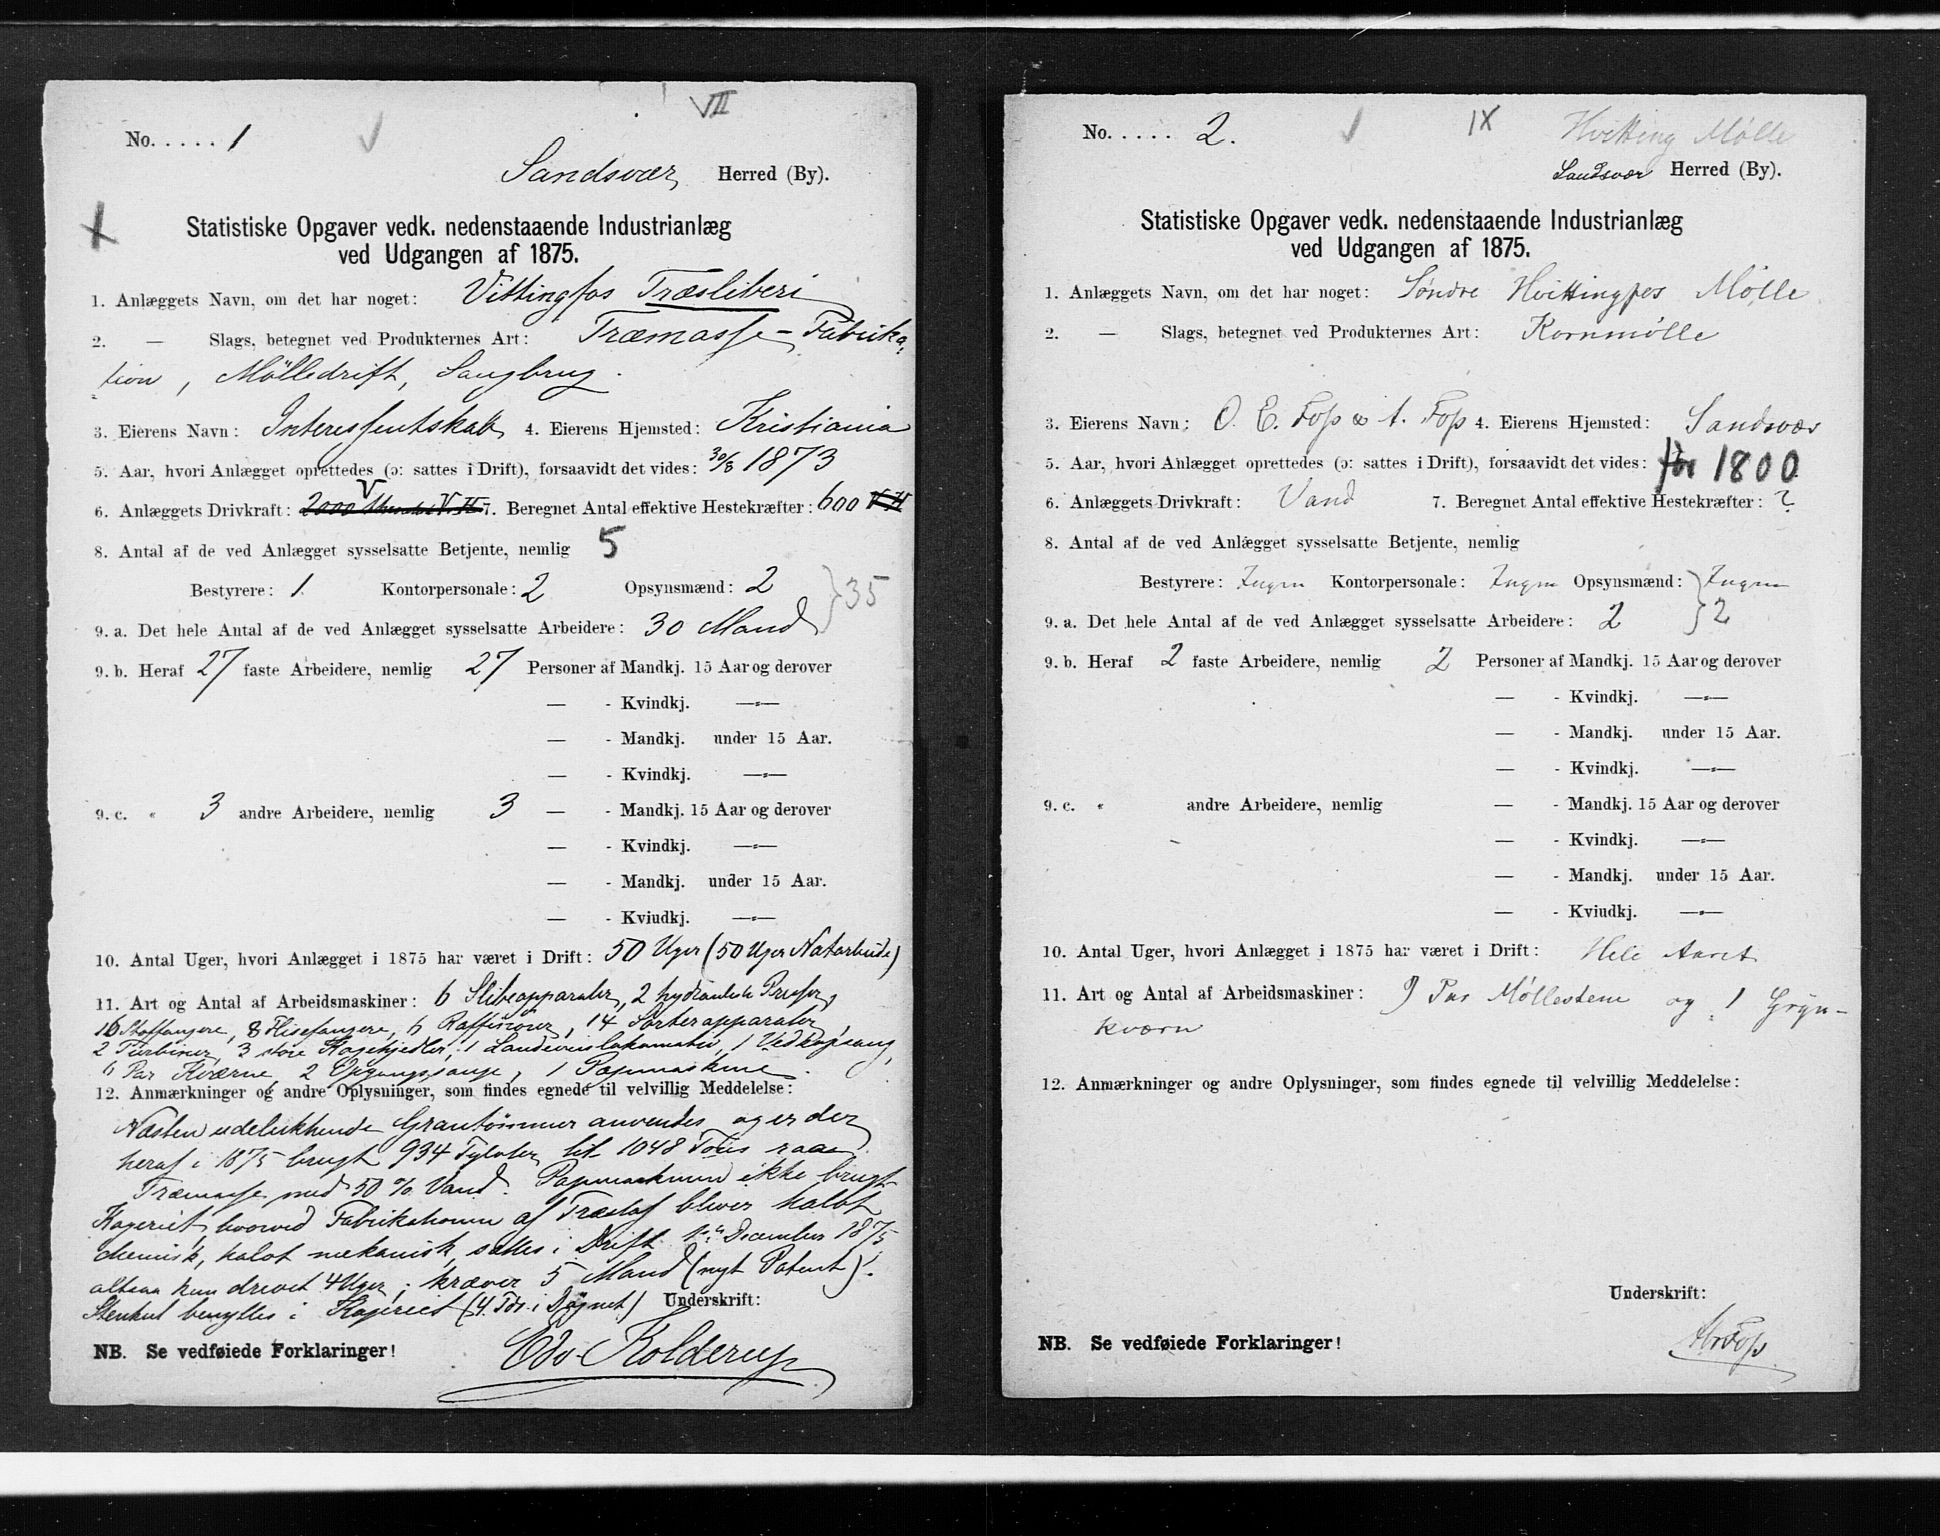 VII
No. . . . . 1
Sandsvær Herred (By).
Statistiske Opgaver vedk. nedenstaaende Industrianlæg
ved Udgangen af 1875.
1. Anlæggets Navn, om det har noget: Vittingfos Træsliberi
2. — Slags, betegnet ved Produkternes Art: Træmasse-Fabrika-
tion, Mölledrift, Saugbrug.
3. Eierens Navn: Interessentskab 4. Eierens Hjemsted: Kristiania
5. Aar, hvori Anlægget oprettedes (ɔ: sattes i Drift), forsaavidt det vides: 30/8 1873
6. Anlæggets Drivkraft: V 7. Beregnet Antal effektive Hestekræfter: 600
8. Antal af de ved Anlægget sysselsatte Betjente, nemlig 5
Bestyrere: 1. Kontorpersonale: 2 Opsynsmænd: 2 } 35
9. a. Det hele Antal af de ved Anlægget sysselsatte Arbeidere: 30 Mand
9. b. Heraf 27 faste Arbeidere, nemlig 27 Personer af Mandkj. 15 Aar og derover
— - Kvindkj. —„—
— - Mandkj. under 15 Aar.
— - Kvindkj. —„—
9. c. „ 3 andre Arbeidere, nemlig 3 — - Mandkj. 15 Aar og derover
— - Kvindkj. —„—
— - Mandkj. under 15 Aar.
— - Kviudkj. —„—
10. Antal Uger, hvori Anlægget i 1875 har været i Drift: 50 Uger (50 Uger Natarbeide)
11. Art og Antal af Arbeidsmaskiner: 6 Slibeapparater, 2 hydrauliske Presser,
10 Stoffangere, 8 Flisefangere, 6 Raffinörer, 14 Sorterapparater,
2 Turbiner, 3 store Kogekjedler, 1 1 Vedkapsaug,
6 Par Kværne, 2 Opgangssauge, 1 Papmaskine.
12. Anmærkninger og andre Oplysninger, som findes egnede til velvillig Meddelelse:
Næsten udelukkende Grantömmer anvendes og er der
heraf i 1875 brugt 934 Tylvter til 1048 Tons raae
Træmasse med 50 % Vand. Papmaskinen ikke brugt
Kogeriet, hvorved Fabrikationen af Træstof bliver halvt
chemisk, halvt mekanisk, sattes i Drift 1ste December 1875
altsaa kun drevet 4 Uger; kræver 5 Mand (nyt Patent).
Stenkul benyttes i Kogeriet (4 Tdr. i Dögnet) Underskrift:
NB. Se vedføiede Forklaringer! Edv. Kolderup
No. . . . . 2.
IX
Hvitting Mølle
Sandsvær Herred (By).
Statistiske Opgaver vedk. nedenstaaende Industrianlæg
ved Udgangen af 1875.
1. Anlæggets Navn, om det har noget: Søndre Hvittingfos Mølle
2. — Slags, betegnet ved Produkternes Art: Kornmølle
3. Eierens Navn: O. E. Foss & A. Foss 4. Eierens Hjemsted: Sandsvær
5. Aar, hvori Anlægget oprettedes (ɔ: sattes i Drift), forsaavidt det vides: før 1800
6. Anlæggets Drivkraft: Vand 7. Beregnet Antal effektive Hestekræfter: ?
8. Antal af de ved Anlægget sysselsatte Betjente, nemlig
Bestyrere: Ingen Kontorpersonale: Ingen Opsynsmænd: Ingen
9. a. Det hele Antal af de ved Anlægget sysselsatte Arbeidere: 2 } 2
9. b. Heraf 2 faste Arbeidere, nemlig 2 Personer af Mandkj. 15 Aar og derover
— - Kvindkj. —„—
— - Mandkj. under 15 Aar.
— - Kvindkj. —„—
9. c. „ andre Arbeidere, nemlig — - Mandkj. 15 Aar og derover
— - Kvindkj. —„—
— - Mandkj. under 15 Aar.
— - Kviudkj. —„—
10. Antal Uger, hvori Anlægget i 1875 har været i Drift: Hele Aaret
11. Art og Antal af Arbeidsmaskiner: 9 Par Møllestene og 1 Gryn-
kværn
12. Anmærkninger og andre Oplysninger, som findes egnede til velvillig Meddelelse:
Underskrift:
NB. Se vedføiede Forklaringer! Foss